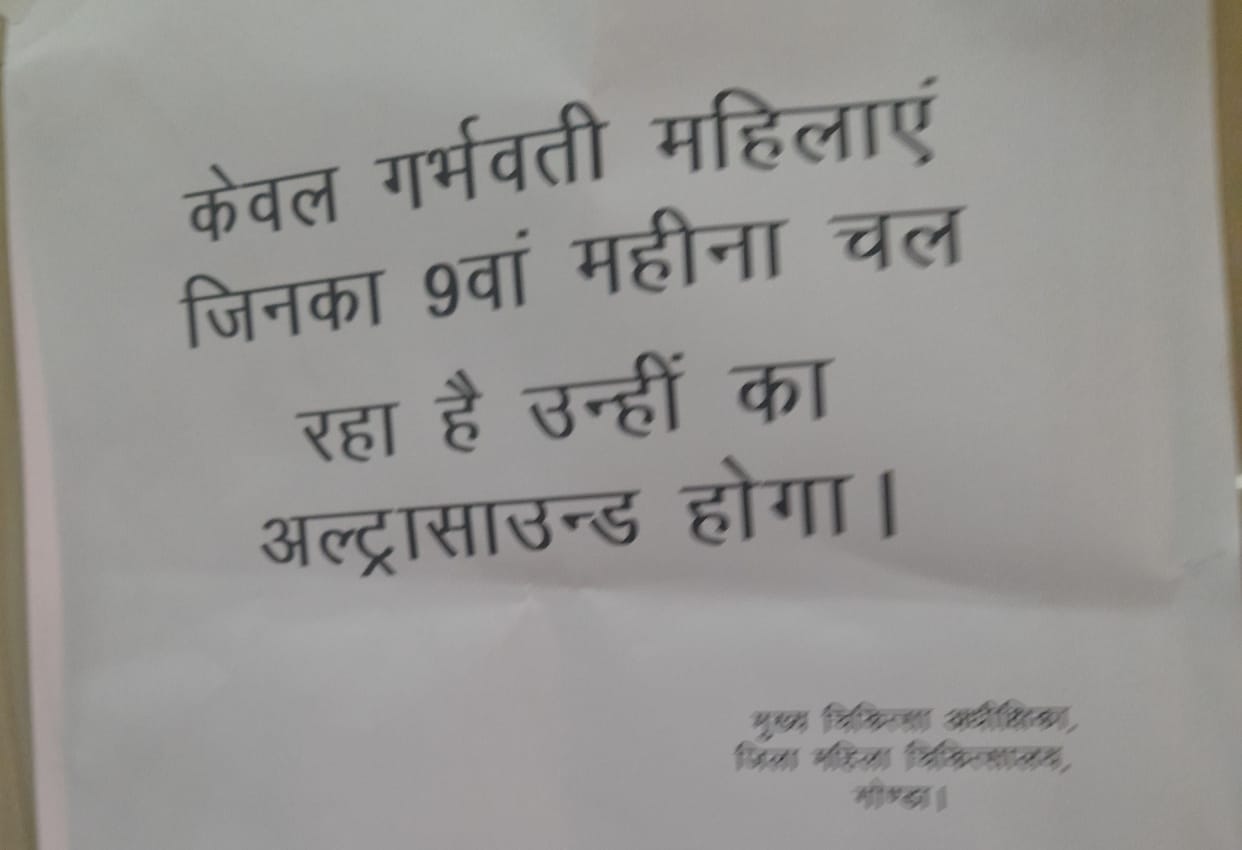 केवल गर्भवती महिलाएं
जिनका 9वां महीना चल
रहा है उन्हीं का
अल्ट्रासाउन्ड होगा।
मुख्य चिकित्सा अधीक्षिका,
जिला महिला चिकित्सालय,
गोण्डा।